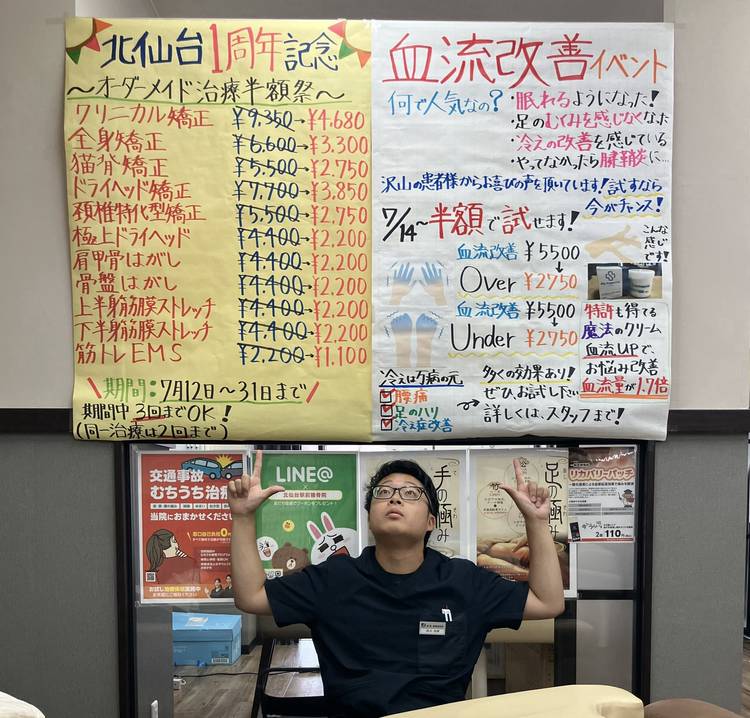 北仙台1周年記念
～オーダーメイド治療半額祭～
クリニカル矯正 ¥9.350→¥4.680
全身矯正 ¥6.600→¥3.300
猫背矯正 ¥5.500→¥2.750
ドライヘッド矯正 ¥7.700→¥3.850
頚椎特化型矯正 ¥5.500→¥2.750
極上ドライヘッド ¥4.400→¥2.200
肩甲骨はがし ¥4.400→¥2.200
骨盤はがし ¥4.400→¥2.200
上半身筋膜ストレッチ ¥4.400→¥2.200
下半身筋膜ストレッチ ¥4.400→¥2.200
筋トレEMS ¥2.200→¥1.100
期間:7月12日～31日まで
期間中3回までOK!
(同一治療は2回まで)
血流改善イベント
何で人気なの?
・眠れるようになった!
・足のむくみを感じなくなった
・冷えの改善を感じている
・やってなかったら腱鞘炎に…
沢山の患者様からお喜びの声を頂いています!試すなら
今がチャンス!
7/14～半額で試せます!
こんな
感じ
です!
血流改善 ¥5500
Over ¥2750
血流改善 ¥5500
Under ¥2750
特許も得てる
魔法のクリーム
血流UPで、
お悩み改善
血流量が1.7倍
冷えは万病の元
腰痛
足のハリ
冷え症改善
多くの効果あり!
ぜひ、お試し下さい
詳しくは、スタッフまで!
交通事故
むちうち治療
当院におまかせください
LINE@
×
北仙台駅前接骨院
手の極み
足の極み
リカバリーパッチ
2枚110円